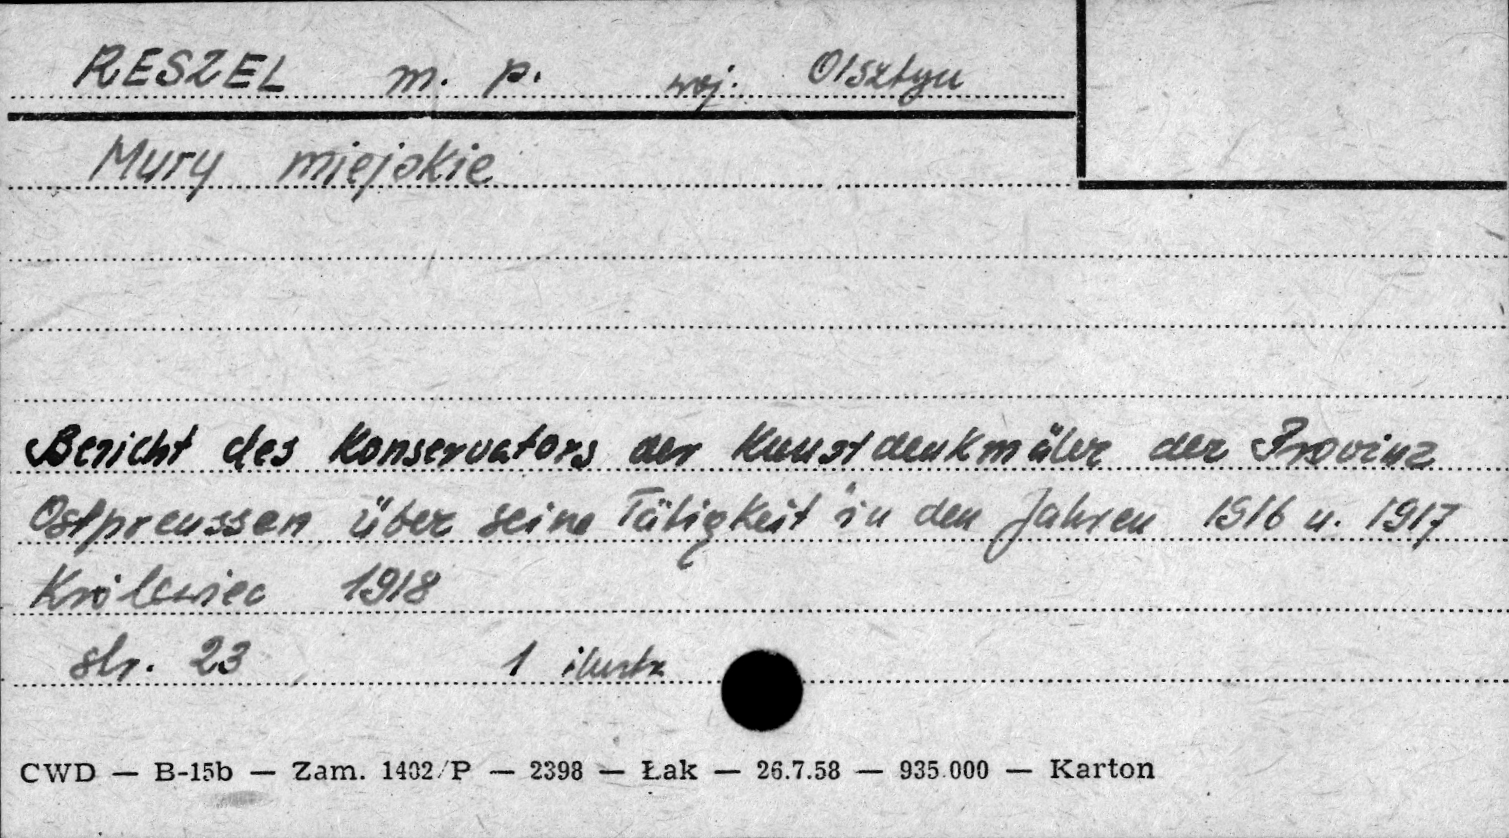 RESZEL m. p. woj. Olsztyn
Mury miejskie
Bericht des Konservators der Kunstdenkmäler der Provinz
Ostpreussen über seine Tätigkeit in den Jahren 1916 u. 1917
Królewiec 1918
str. 23, 1 ilustr.
CWD — B-15b — Zam. 1402/P — 2398 — Łak — 26.7.58 — 935.000 — Karton